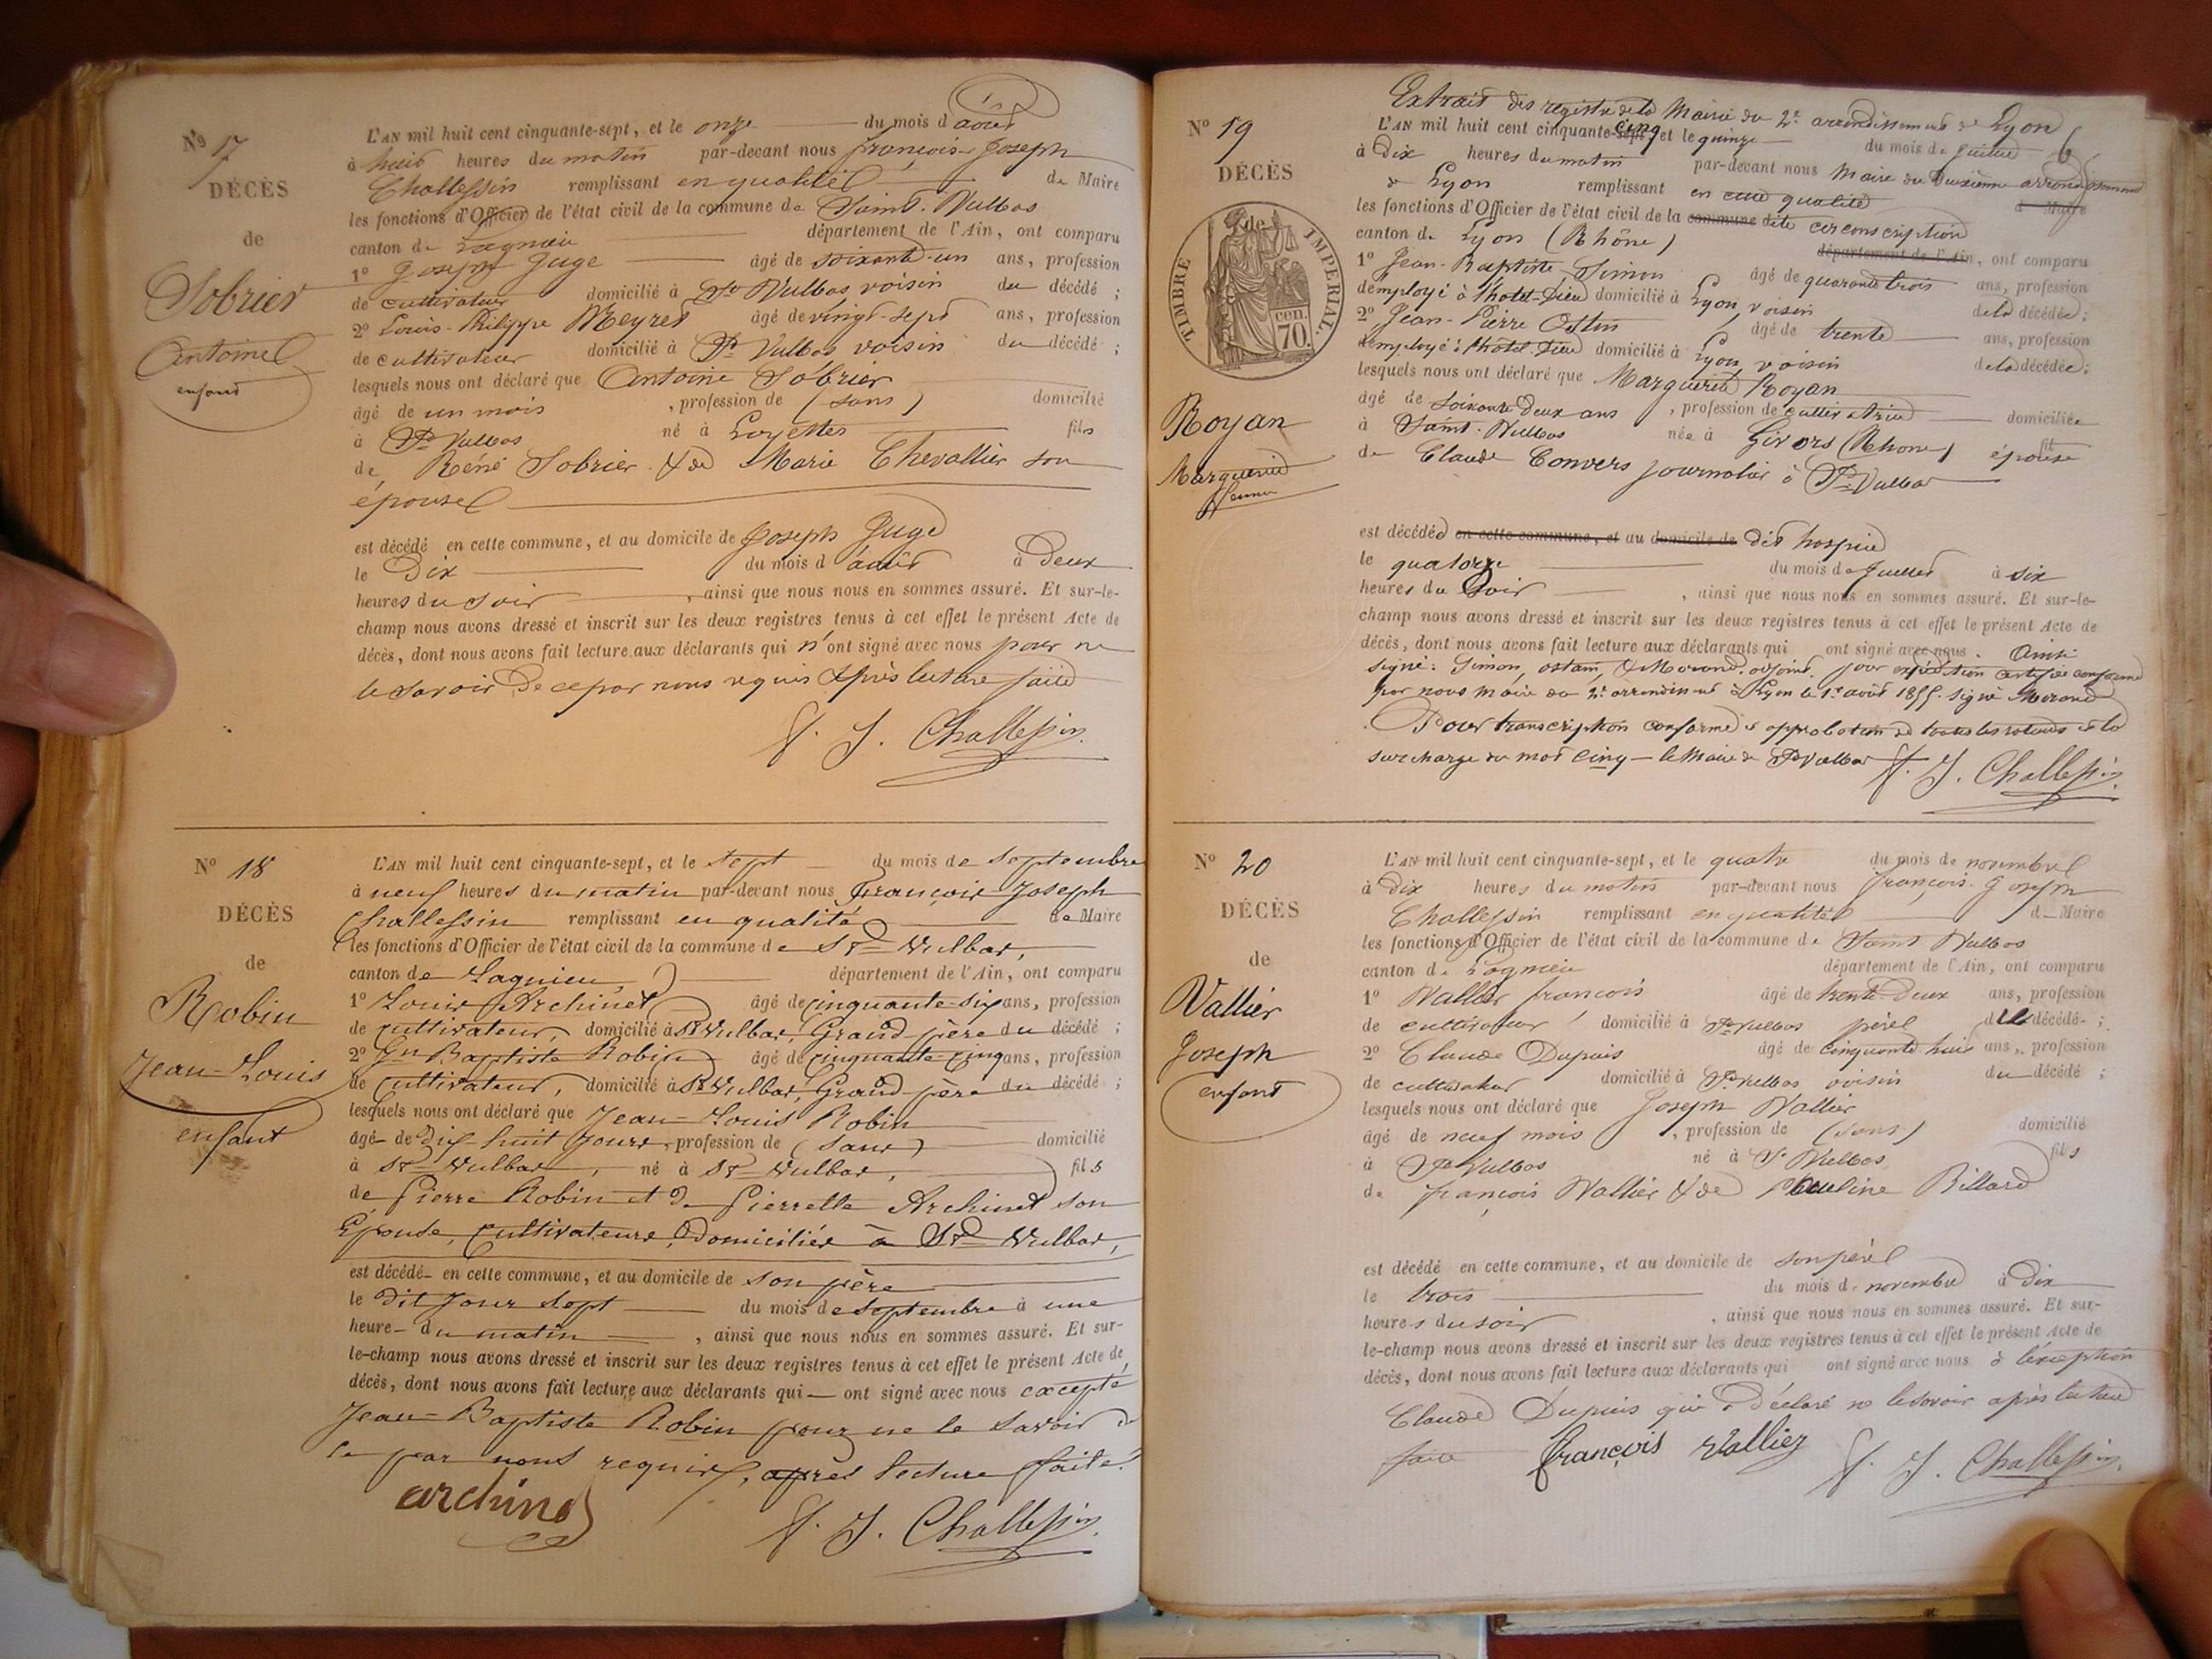 Nº 17
DÉCÈS
de
Sobrier
Antoine
enfant
L'AN mil huit cent cinquante-sept, et le onze du mois d'août
à huit heures du matin par-devant nous françois-Joseph
Challessin remplissant en qualité de Maire
les fonctions d'Officier de l'état civil de la commune de Saint-Vulbas
canton de Lagnieu département de l'Ain, ont comparu
1º Joseph Juge âgé de soixante-un ans, profession
de cultivateur domicilié à St Vulbas voisin du décédé ;
2º Louis-Philippe Meyret âgé de vingt-sept ans, profession
de cultivateur domicilié à St Vulbas voisin du décédé ;
lesquels nous ont déclaré que Antoine Sobrier
âgé de un mois , profession de (sans) domicilié
à St Vulbas né à Loyettes fils
de Réné Sobrier & de Marie Chevallier son
épouse
est décédé en cette commune, et au domicile de Joseph Juge
le Dix du mois d'août à Deux
heures du soir , ainsi que nous nous en sommes assuré. Et sur-le-
champ nous avons dressé et inscrit sur les deux registres tenus à cet effet le présent Acte de
décès, dont nous avons fait lecture aux déclarants qui n'ont signé avec nous pour ne
le savoir De ce par nous requis après lecture faite
f. J. Challessin
Nº 18
DÉCÈS
de
Robin
Jean-Louis
enfant
L'AN mil huit cent cinquante-sept, et le sept du mois de septembre
à neuf heures du matin par-devant nous François-Joseph
Challessin remplissant en qualité de Maire
les fonctions d'Officier de l'état civil de la commune de St Vulbas,
canton de Lagnieu, département de l'Ain, ont comparu
1º Louis Archinet âgé de cinquante-six ans, profession
de cultivateur, domicilié à St Vulbas, Grand-père du décédé ;
2º Jn Baptiste Robin âgé de cinquante-cinq ans, profession
de cultivateur, domicilié à St Vulbas, Grand-père du décédé ;
lesquels nous ont déclaré que Jean-Louis Robin
âgé de dix huit jours, profession de (sans) domicilié
à St Vulbas, né à St Vulbas, fils
de Pierre Robin et de Pierrette Archinet son
Épouse, cultivateurs, domiciliés à St Vulbas,
est décédé en cette commune, et au domicile de son père
le dit jour sept du mois de septembre à une
heure du matin , ainsi que nous nous en sommes assuré. Et sur-
le-champ nous avons dressé et inscrit sur les deux registres tenus à cet effet le présent Acte de
décès, dont nous avons fait lecture aux déclarants qui ont signé avec nous excepté
Jean-Baptiste Robin pour ne le savoir de
ce par nous requis, après lecture faite.
archinet
f. J. Challessin
Nº 19
DÉCÈS
de
TIMBRE IMPÉRIAL.
70. cen.
Royan
Marguerite
femme
6
Extrait des registre de la Mairie du 2e arrondissement de Lyon
L'AN mil huit cent cinquante-cinq et le quinze du mois de juillet
à Dix heures du matin par-devant nous Maire du Deuxième arrondissement
de Lyon remplissant en cette qualité d Maire
les fonctions d'Officier de l'état civil de la commune dite circonscription
canton de Lyon (Rhône) département de l'Ain, ont comparu
1º Jean-Baptiste Simon âgé de quarante trois ans, profession
d'employé à l'hotel-Dieu domicilié à Lyon, voisin de la décédée ;
2º Jean-Pierre Ostin âgé de trente ans, profession
d'employé à l'hotel-Dieu domicilié à Lyon voisin de la décédée ;
lesquels nous ont déclaré que Marguerite Royan
âgé de soixante Deux ans , profession de cultivatrice domiciliée
à Saint-Vulbas née à Givors (Rhone) épouse
de Claude Convers journalier à St Vulbas
est décédée en cette commune, et au domicile de dit hospice
le quatorze du mois de Juillet à six
heures du Soir , ainsi que nous nous en sommes assuré. Et sur-le-
champ nous avons dressé et inscrit sur les deux registres tenus à cet effet le présent Acte de
décès, dont nous avons fait lecture aux déclarants qui ont signé avec nous. Ainsi
signé : Simon, & Morand, adjoint. pour expédition certifiée conforme
par nous Maire du 2e arrondissmt à Lyon le 1er août 1855. signé Morand
Pour transcription conforme & approbation de toutes les ratures & la
surcharge du mot Cinq - le Maire de St Vulbas f. J. Challessin
Nº 20
DÉCÈS
de
Vallier
Joseph
enfant
L'AN mil huit cent cinquante-sept, et le quatre du mois de novembre
à Dix heures du matin par-devant nous françois-Joseph
Challessin remplissant en qualité d Maire
les fonctions d'Officier de l'état civil de la commune de Saint Vulbas
canton de Lagnieu département de l'Ain, ont comparu
1º Vallier françois âgé de trente-Deux ans, profession
de cultivateur domicilié à St Vulbas père du décédé ;
2º Claude Dupuis âgé de cinquante huit ans, profession
de cultivateur domicilié à St Vulbas voisin du décédé ;
lesquels nous ont déclaré que Joseph Vallier
âgé de neuf mois , profession de (sans) domicilié
à St Vulbas né à St Vulbas fils
de françois Vallier & de Pauline Billard
est décédé en cette commune, et au domicile de son père
le trois du mois de novembre à Dix
heures du soir , ainsi que nous nous en sommes assuré. Et sur-
le-champ nous avons dressé et inscrit sur les deux registres tenus à cet effet le présent Acte de
décès, dont nous avons fait lecture aux déclarants qui ont signé avec nous à l'éxeption
Claude Dupuis qui a déclaré ne le savoir après lecture
faite françois vallier f. J. Challessin